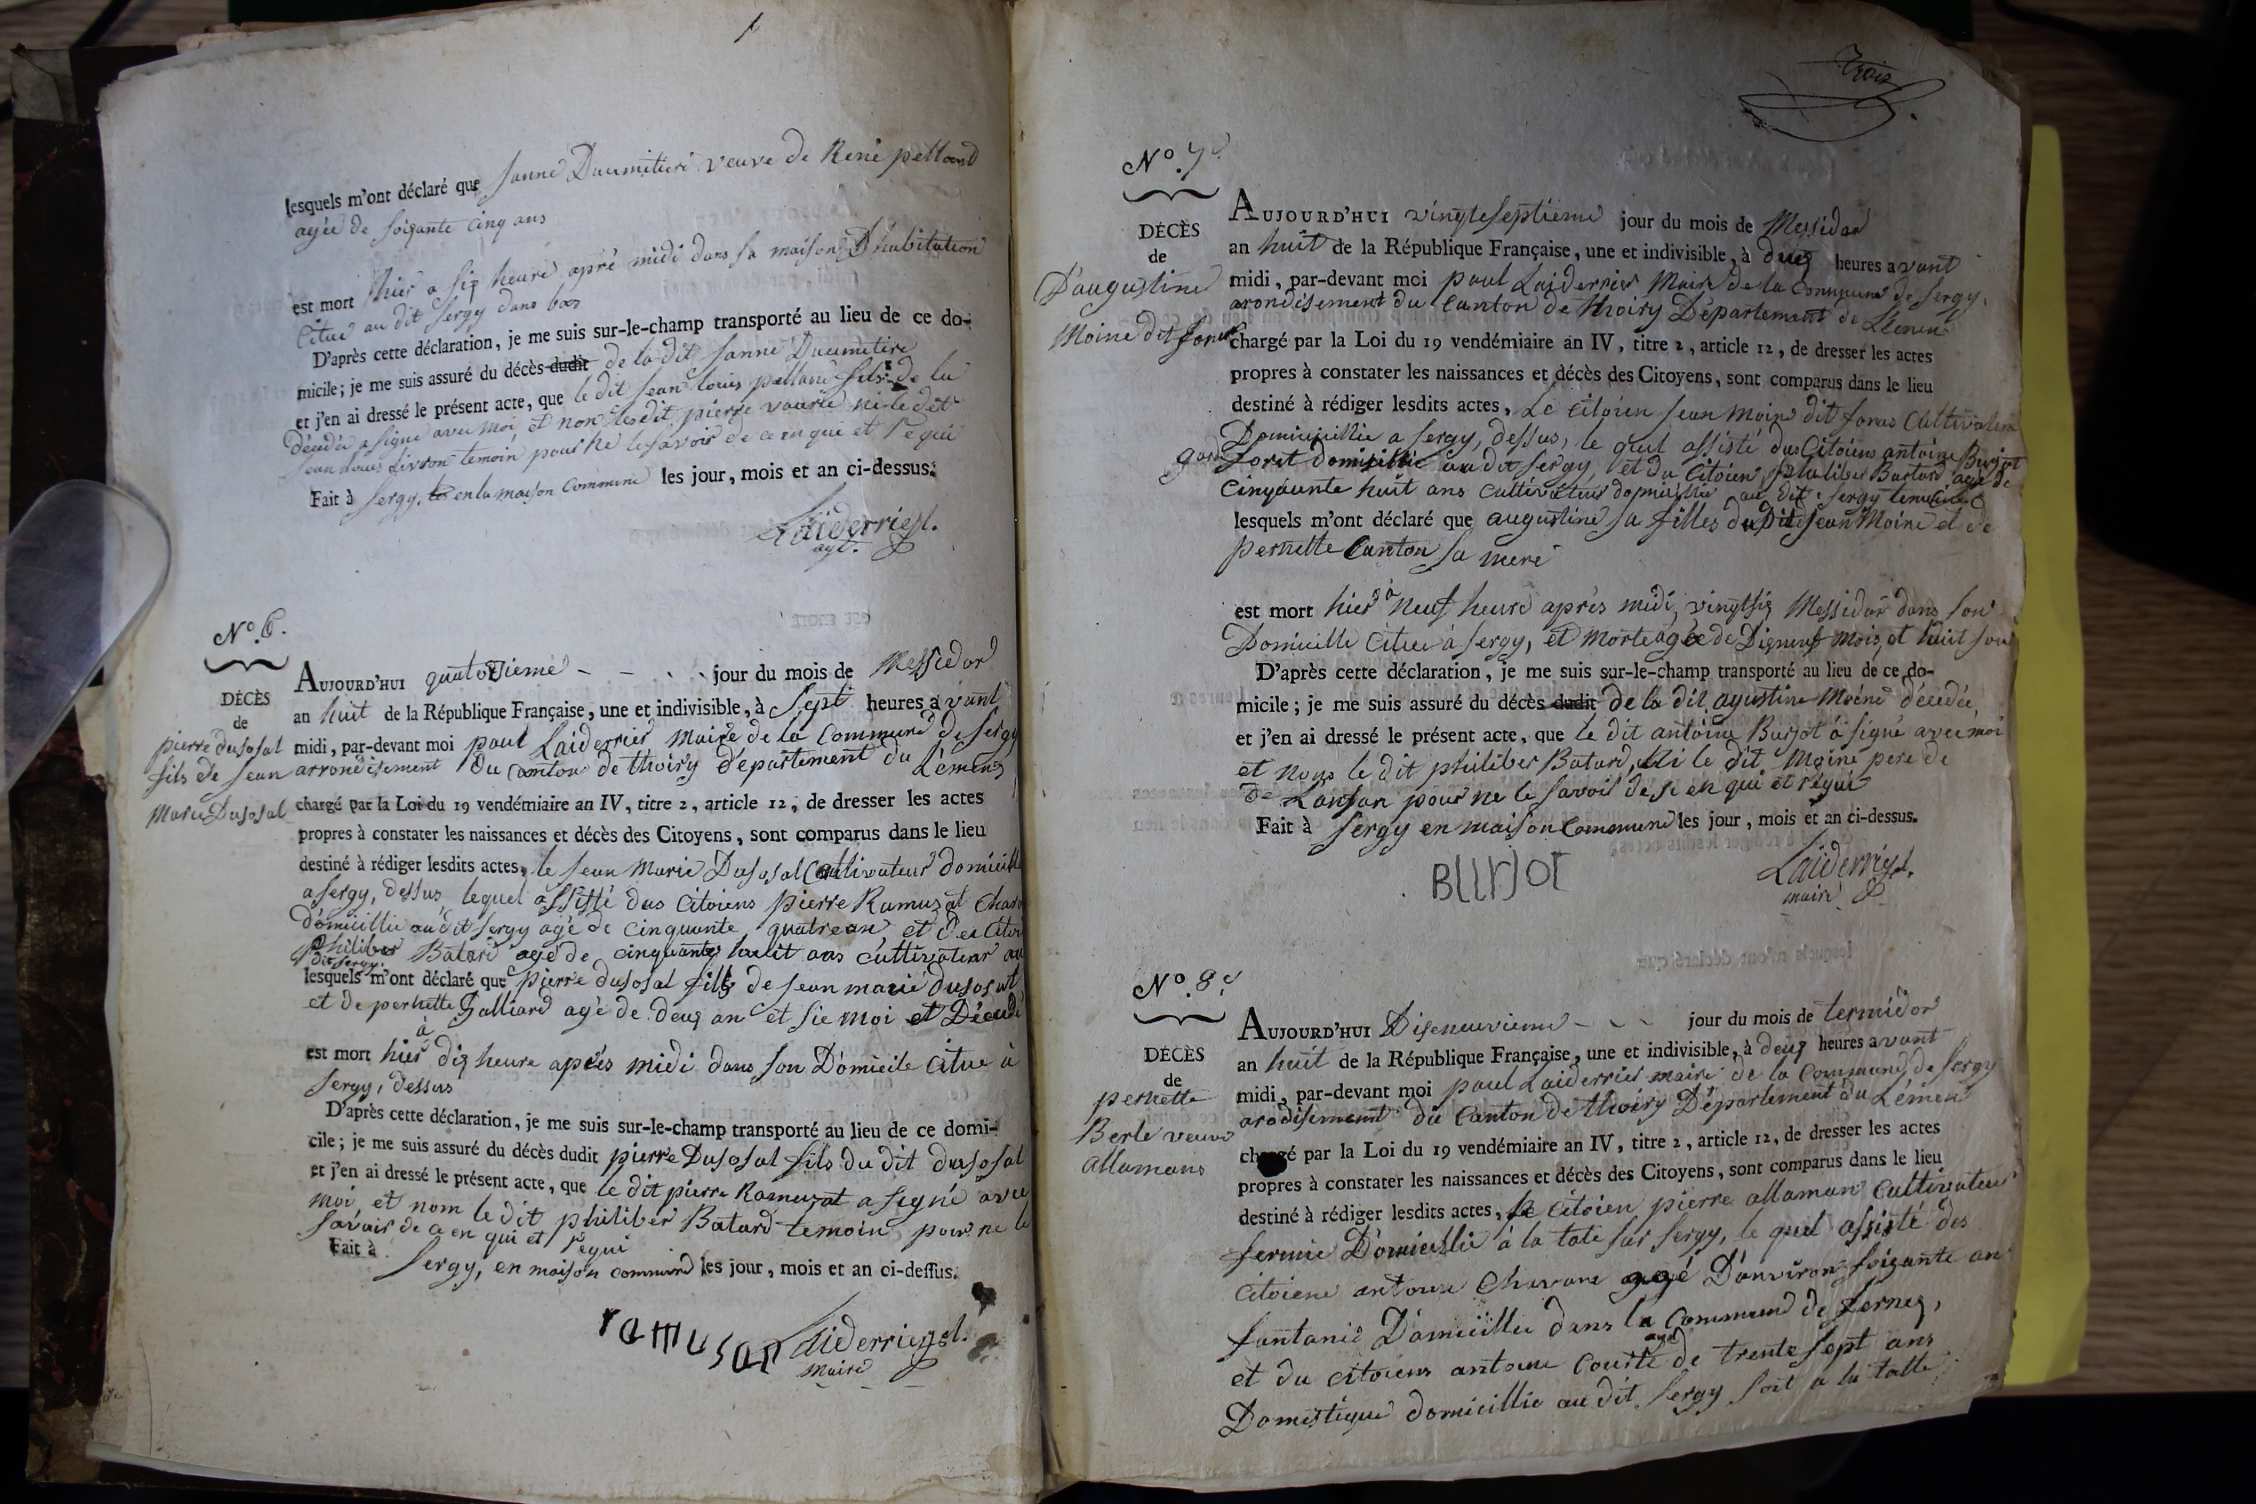 lesquels m'ont déclaré que Janne Ducimetieri veuve de René pelloand
agée de soixante cinq ans
est mort hier a six heure apré midi dans sa maison D'habitation
Citué au dit Sergy dans bas
D'après cette déclaration, je me suis sur-le-champ transporté au lieu de ce do-
micile; je me suis assuré du décès dudit de la dit Janne Ducimetire
et j'en ai dressé le présent acte, que le dit Jean louis pelland fils de la
décédée a signé avec moi et non le dit pierre vourle ni le dit
Jean louis Livron temoin pour ne le savoir de ce en qui et requi
Fait à Sergy, en la maison Commune les jour, mois et an ci-dessus.
Laiderrier.
agt.
No. 6.
DÉCÈS
de
pierre dusosal
fils de Jean
Marie Dusosal
AUJOURD'HUI quatorzieme - - - - jour du mois de Messidor
an huit de la République Française, une et indivisible, à Sept heures avant
midi, par-devant moi paul Laiderrier maire de la Commune de Sergy
arrondisement du Canton de thoiry département du Léman
chargé par la Loi du 19 vendémiaire an IV, titre 2, article 12, de dresser les actes
propres à constater les naissances et décès des Citoyens, sont comparus dans le lieu
destiné à rédiger lesdits actes, le Jean Marie Dusosal Cultivateur domicilié
a Sergy, dessus, lequel assisté das Citoiens pierre Ramuzat
domicillié au dit Sergy agé de Cinquante quatre an et des Citoi
philiber Batard agé de cinquante huit ans cultivateur au
dit Sergy.
lesquels m'ont déclaré que pierre dusosal fils de Jean marie dusosal
et de pernette Galliard agé de deux an et sie moi et Décédé
est mort hier à dix heure après midi dans son Domicile Citue à
Sergy, dessus
D'après cette déclaration, je me suis sur-le-champ transporté au lieu de ce domi-
cile; je me suis assuré du décès dudit pierre Dusosal fils du dit dusosal
et j'en ai dressé le présent acte, que le dit pierre Ramuzat a signé avec
moi et nom le dit philiber Batard temoin pour ne le
savoir de ce en qui et requi
Fait à Sergy, en maison commune les jour, mois et an ci-dessus.
ramusat Laiderrier.
maire
Trois
No. 7e
DÉCÈS
de
D'augustine
Moine dit foras
AUJOURD'HUI vingt septieme jour du mois de Messidor
an huit de la République Française, une et indivisible, à deux heures avant
midi, par-devant moi paul Laiderrier Maire de la Commune de Sergy,
arondisement du Canton de thoiry Département de Lémen
chargé par la Loi du 19 vendémiaire an IV, titre 2, article 12, de dresser les actes
propres à constater les naissances et décès des Citoyens, sont comparus dans le lieu
destiné à rédiger lesdits actes, Le Citoien Jean Moine dit foras Cultivateur
Domicillié a Sergy, dessus, le quel assisté das Citoiens antoine Burjot
garde Foret domicillié au dit Sergy et du Citoien philiber Batard agé de
Cinquante huit ans cultivateur domicillié au dit Sergy
lesquels m'ont déclaré que augustine sa filles du dit Jean Moine et de
pernette Canton sa mere
est mort hier à Neuf heure après midi, vingt six Messidor dans son
Domicille Citué à Sergy, et morte agée de Dixneuf mois et huit jour
D'après cette déclaration, je me suis sur-le-champ transporté au lieu de ce do-
micile; je me suis assuré du décès dudit de la dit agustine Moine décédée,
et j'en ai dressé le présent acte, que le dit antoine Burjot à signé avec moi
et nom le dit philiber Batard, Ni le dit Moine pere de
de L'anfan pour ne le savoir de se en qui et requi
Fait à Sergy en maison Commune les jour, mois et an ci-dessus.
Burjot
Laiderrier.
maire
No. 8e
DÉCÈS
de
pernette
Berle veuve
allamans
AUJOURD'HUI Dixeneuvieme - - - jour du mois de termidor
an huit de la République Française, une et indivisible, à deux heures avant
midi, par-devant moi paul Laiderrier maire de la Commune de Sergy
arodisement du Canton de thoiry Département du Lémen
chargé par la Loi du 19 vendémiaire an IV, titre 2, article 12, de dresser les actes
propres à constater les naissances et décès des Citoyens, sont comparus dans le lieu
destiné à rédiger lesdits actes, le Citoien pierre allaman Cultivateur
fermie Domicillié à la tate sur Sergy, le quel assisté des
Citoiene antoine Chavane agé D'anviron soixante an
fontanié Domicillié dans la Commune de Fernex,
et du citoiens antoine Courte agé de trente sept ans
Domestique domicillié au dit Sergy soit a la tatte